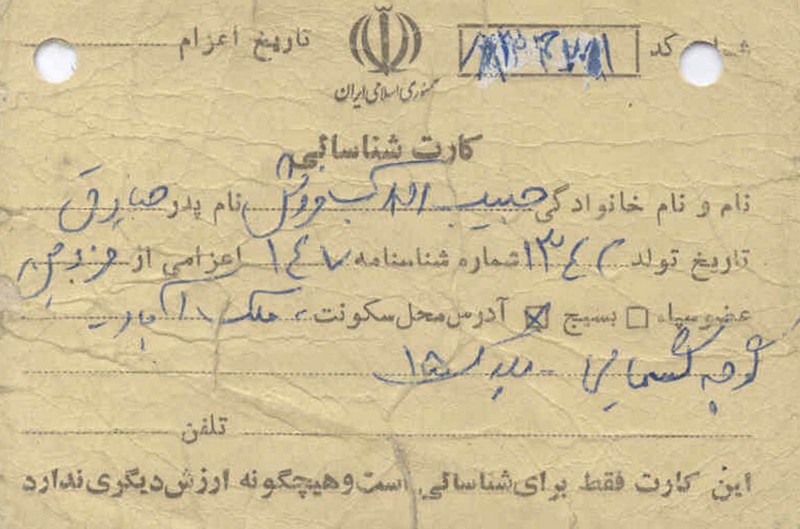 شماره کد ۸۳۳۷۸۱ تاریخ اعزام
جمهوری اسلامی ایران
کارت شناسائی
نام و نام خانوادگی حبیب الله نام پدر صادق
تاریخ تولد ۱۳۴۲ شماره شناسنامه ۱۴۷ اعزامی از قزوین
عضو سپاه بسیج آدرس محل سکونت ملک آباد
کوچه پلاک ۱۵
تلفن
این کارت فقط برای شناسائی است و هیچگونه ارزش دیگری ندارد